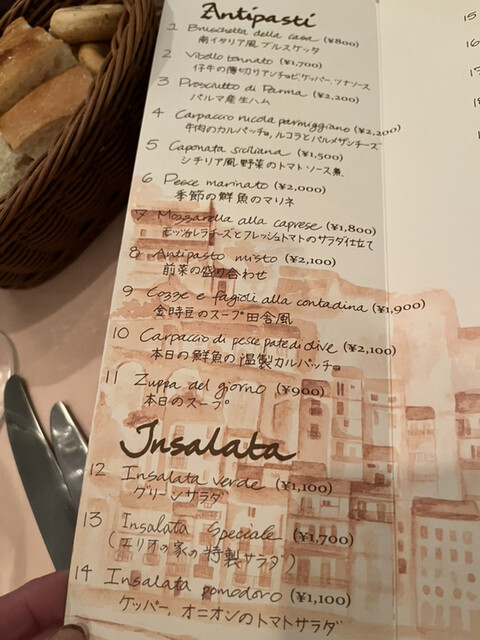 Antipasti
1 Bruschetta della casa (¥800)
南イタリア風ブルスケッタ
2 Vitello tonnato (¥1,700)
仔牛の薄切りアンチョビ、ケッパー、ツナソース
3 Prosciutto di Parma (¥2,200)
パルマ産生ハム
4 Carpaccio rucola parmiggiano (¥2,200)
牛肉のカルパッチョ、ルコラとパルメザンチーズ
5 Caponata siciliana (¥1,500)
シチリア風野菜のトマトソース煮
6 Pesce marinato (¥2,000)
季節の鮮魚のマリネ
7 Mozzarella alla caprese (¥1,800)
モッツァレラチーズとフレッシュトマトのサラダ仕立て
8 Antipasto misto (¥2,100)
前菜の盛り合わせ
9 Cozze e fagioli alla contadina (¥1,900)
金時豆のスープ田舎風
10 Carpaccio di pesce pate di olive (¥2,100)
本日の鮮魚の温製カルパッチョ
11 Zuppa del giorno (¥900)
本日のスープ
Insalata
12 Insalata verde (¥1,100)
グリーンサラダ
13 Insalata Speciale (¥1,700)
(エリオの家の特製サラダ)
14 Insalata pomodoro (¥1,100)
ケッパー、オニオンのトマトサラダ
15
16
18